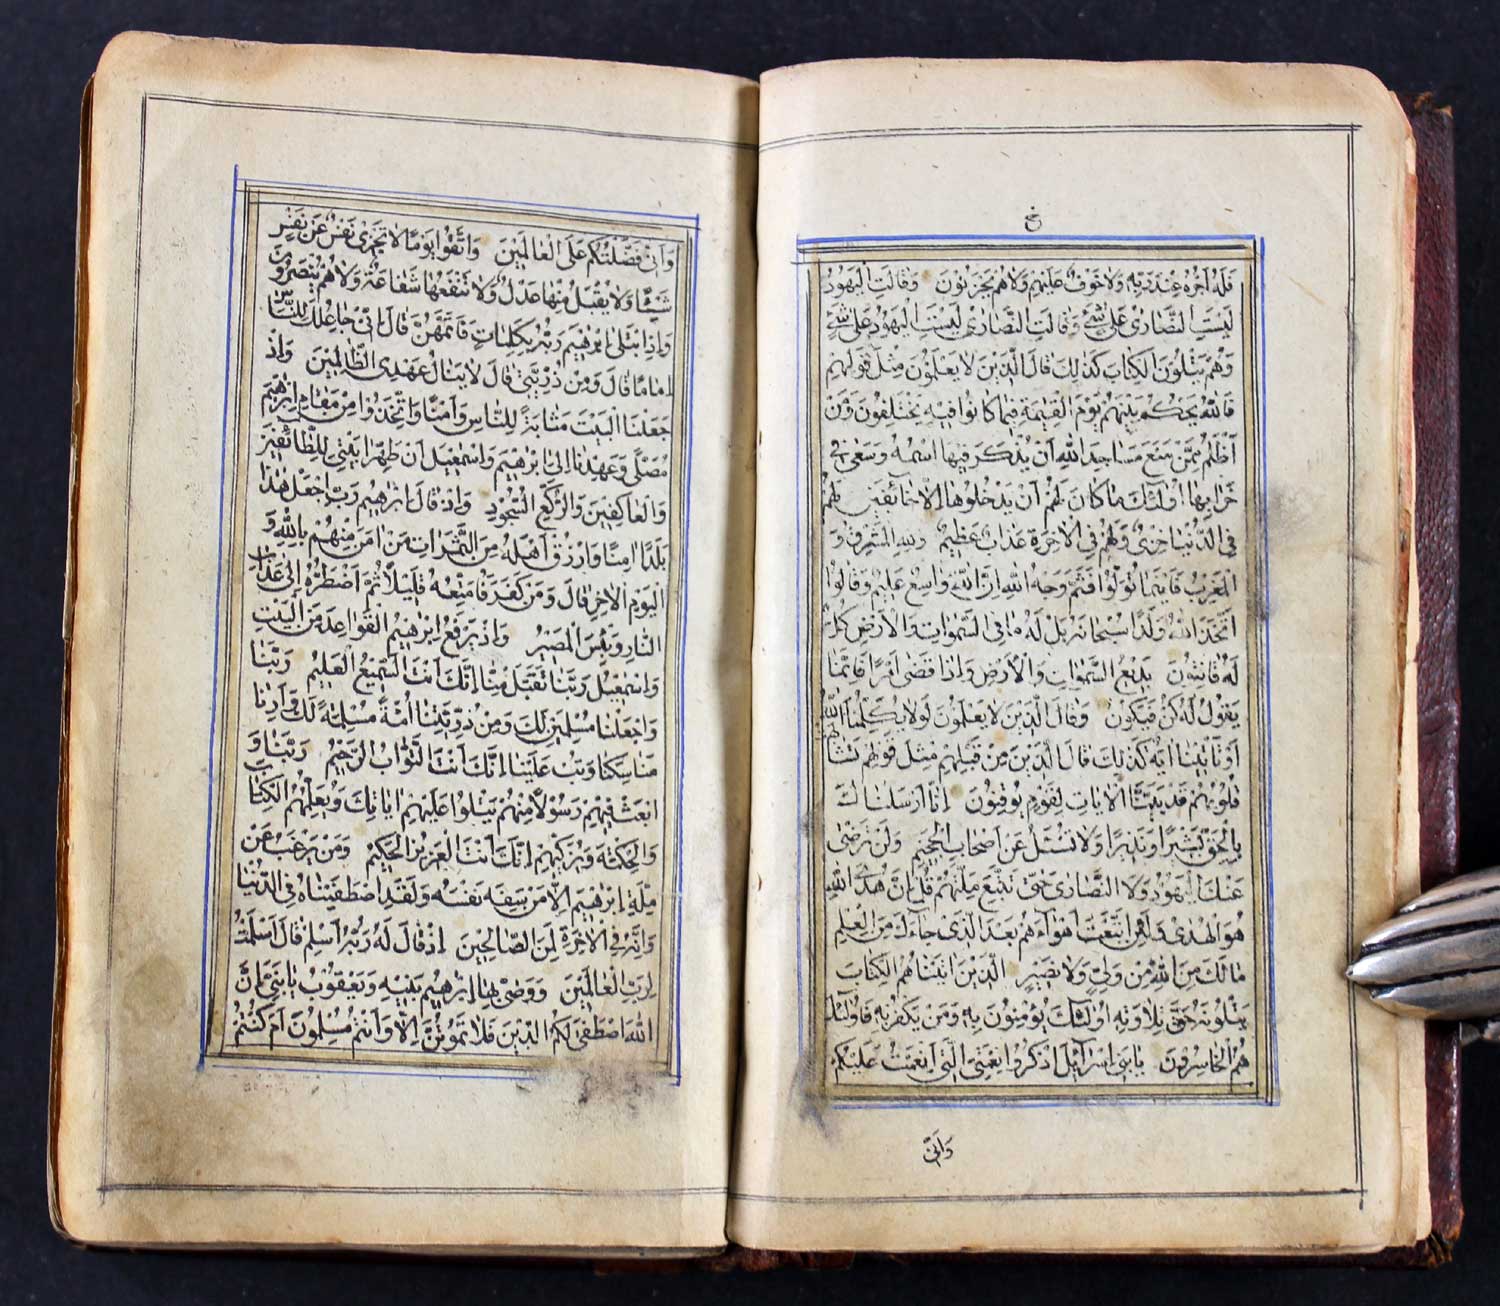 فَلَهُ أَجْرُهُ عِنْدَ رَبِّهِ وَلَا خَوْفٌ عَلَيْهِمْ وَلَا هُمْ يَحْزَنُونَ وَقَالَتِ الْيَهُودُ
لَيْسَتِ النَّصَارَى عَلَى شَيْءٍ وَقَالَتِ النَّصَارَى لَيْسَتِ الْيَهُودُ عَلَى شَيْءٍ
وَهُمْ يَتْلُونَ الْكِتَابَ كَذَلِكَ قَالَ الَّذِينَ لَا يَعْلَمُونَ مِثْلَ قَوْلِهِمْ
فَاللَّهُ يَحْكُمُ بَيْنَهُمْ يَوْمَ الْقِيمَةِ فِيمَا كَانُوا فِيهِ يَخْتَلِفُونَ وَمَنْ
أَظْلَمُ مِمَّنْ مَنَعَ مَسَاجِدَ اللَّهِ أَنْ يُذْكَرَ فِيهَا اسْمُهُ وَسَعَى فِي
خَرَابِهَا أُولَئِكَ مَا كَانَ لَهُمْ أَنْ يَدْخُلُوهَا إِلَّا خَائِفِينَ لَهُمْ
فِي الدُّنْيَا خِزْيٌ وَلَهُمْ فِي الْآخِرَةِ عَذَابٌ عَظِيمٌ وَلِلَّهِ الْمَشْرِقُ وَ
الْمَغْرِبُ فَأَيْنَمَا تُوَلُّوا فَثَمَّ وَجْهُ اللَّهِ إِنَّ اللَّهَ وَاسِعٌ عَلِيمٌ وَقَالُوا
اتَّخَذَ اللَّهُ وَلَدًا سُبْحَانَهُ بَلْ لَهُ مَا فِي السَّمَوَاتِ وَالْأَرْضِ كُلٌّ
لَهُ قَانِتُونَ بَدِيعُ السَّمَوَاتِ وَالْأَرْضِ وَإِذَا قَضَى أَمْرًا فَإِنَّمَا
يَقُولُ لَهُ كُنْ فَيَكُونُ وَقَالَ الَّذِينَ لَا يَعْلَمُونَ لَوْلَا يُكَلِّمُنَا اللَّهُ
أَوْ تَأْتِينَا آيَةٌ كَذَلِكَ قَالَ الَّذِينَ مِنْ قَبْلِهِمْ مِثْلَ قَوْلِهِمْ تَشَابَهَتْ
قُلُوبُهُمْ قَدْ بَيَّنَّا الْآيَاتِ لِقَوْمٍ يُوقِنُونَ إِنَّا أَرْسَلْنَاكَ
بِالْحَقِّ بَشِيرًا وَنَذِيرًا وَلَا تُسْئَلُ عَنْ أَصْحَابِ الْجَحِيمِ وَلَنْ تَرْضَى
عَنْكَ الْيَهُودُ وَلَا النَّصَارَى حَتَّى تَتَّبِعَ مِلَّتَهُمْ قُلْ إِنَّ هُدَى اللَّهِ
هُوَ الْهُدَى وَلَئِنِ اتَّبَعْتَ أَهْوَاءَهُمْ بَعْدَ الَّذِي جَاءَكَ مِنَ الْعِلْمِ
مَا لَكَ مِنَ اللَّهِ مِنْ وَلِيٍّ وَلَا نَصِيرٍ الَّذِينَ آتَيْنَاهُمُ الْكِتَابَ
يَتْلُونَهُ حَقَّ تِلَاوَتِهِ أُولَئِكَ يُؤْمِنُونَ بِهِ وَمَنْ يَكْفُرْ بِهِ فَأُولَئِكَ
هُمُ الْخَاسِرُونَ يَا بَنِي إِسْرَائِيلَ اذْكُرُوا نِعْمَتِيَ الَّتِي أَنْعَمْتُ عَلَيْكُمْ
وَأَنِّي
وَأَنِّي فَضَّلْتُكُمْ عَلَى الْعَالَمِينَ وَاتَّقُوا يَوْمًا لَا تَجْزِي نَفْسٌ عَنْ نَفْسٍ
شَيْئًا وَلَا يُقْبَلُ مِنْهَا عَدْلٌ وَلَا تَنْفَعُهَا شَفَاعَةٌ وَلَا هُمْ يُنْصَرُونَ
وَإِذِ ابْتَلَى إِبْرَهِيمَ رَبُّهُ بِكَلِمَاتٍ فَأَتَمَّهُنَّ قَالَ إِنِّي جَاعِلُكَ لِلنَّاسِ
إِمَامًا قَالَ وَمِنْ ذُرِّيَّتِي قَالَ لَا يَنَالُ عَهْدِي الظَّالِمِينَ وَإِذْ
جَعَلْنَا الْبَيْتَ مَثَابَةً لِلنَّاسِ وَأَمْنًا وَاتَّخِذُوا مِنْ مَقَامِ إِبْرَهِيمَ
مُصَلًّى وَعَهِدْنَا إِلَى إِبْرَهِيمَ وَإِسْمَعِيلَ أَنْ طَهِّرَا بَيْتِيَ لِلطَّائِفِينَ
وَالْعَاكِفِينَ وَالرُّكَّعِ السُّجُودِ وَإِذْ قَالَ إِبْرَهِيمُ رَبِّ اجْعَلْ هَذَا
بَلَدًا آمِنًا وَارْزُقْ أَهْلَهُ مِنَ الثَّمَرَاتِ مَنْ آمَنَ مِنْهُمْ بِاللَّهِ وَ
الْيَوْمِ الْآخِرِ قَالَ وَمَنْ كَفَرَ فَأُمَتِّعُهُ قَلِيلًا ثُمَّ أَضْطَرُّهُ إِلَى عَذَابِ
النَّارِ وَبِئْسَ الْمَصِيرُ وَإِذْ يَرْفَعُ إِبْرَهِيمُ الْقَوَاعِدَ مِنَ الْبَيْتِ
وَإِسْمَعِيلُ رَبَّنَا تَقَبَّلْ مِنَّا إِنَّكَ أَنْتَ السَّمِيعُ الْعَلِيمُ رَبَّنَا
وَاجْعَلْنَا مُسْلِمَيْنِ لَكَ وَمِنْ ذُرِّيَّتِنَا أُمَّةً مُسْلِمَةً لَكَ وَأَرِنَا
مَنَاسِكَنَا وَتُبْ عَلَيْنَا إِنَّكَ أَنْتَ التَّوَّابُ الرَّحِيمُ رَبَّنَا وَ
ابْعَثْ فِيهِمْ رَسُولًا مِنْهُمْ يَتْلُوا عَلَيْهِمْ آيَاتِكَ وَيُعَلِّمُهُمُ الْكِتَابَ
وَالْحِكْمَةَ وَيُزَكِّيهِمْ إِنَّكَ أَنْتَ الْعَزِيزُ الْحَكِيمُ وَمَنْ يَرْغَبُ عَنْ
مِلَّةِ إِبْرَهِيمَ إِلَّا مَنْ سَفِهَ نَفْسَهُ وَلَقَدِ اصْطَفَيْنَاهُ فِي الدُّنْيَا
وَإِنَّهُ فِي الْآخِرَةِ لَمِنَ الصَّالِحِينَ إِذْ قَالَ لَهُ رَبُّهُ أَسْلِمْ قَالَ أَسْلَمْتُ
لِرَبِّ الْعَالَمِينَ وَوَصَّى بِهَا إِبْرَهِيمُ بَنِيهِ وَيَعْقُوبُ يَا بَنِيَّ إِنَّ
اللَّهَ اصْطَفَى لَكُمُ الدِّينَ فَلَا تَمُوتُنَّ إِلَّا وَأَنْتُمْ مُسْلِمُونَ أَمْ كُنْتُمْ